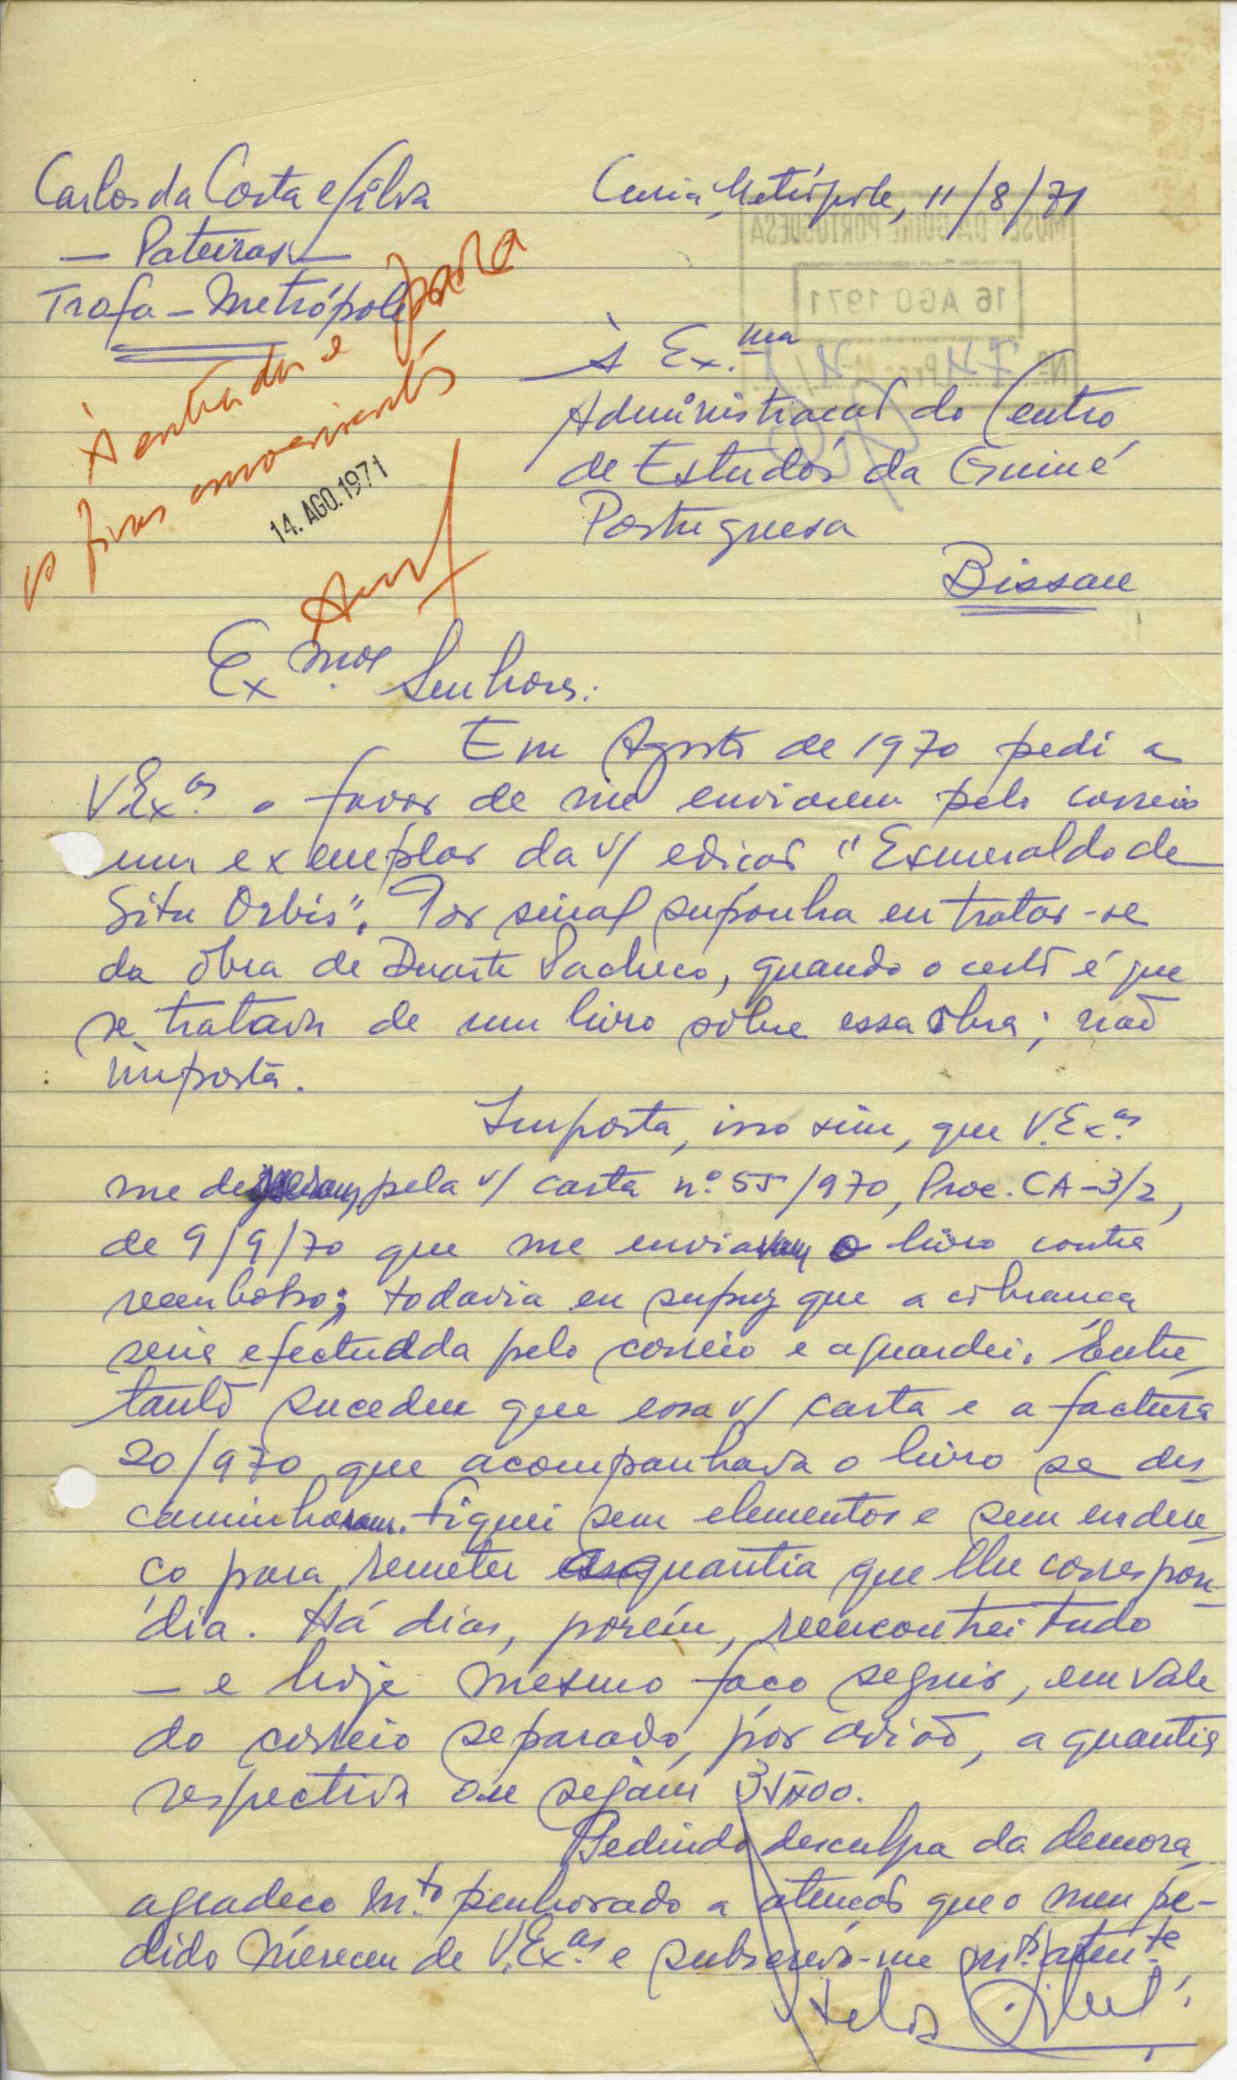 Carlos da Costa e Silva
— Pateiras —
Trofa - Metrópole
Curia, Metrópole, 11/8/71
À entrada e para
os fins convenientes
14. AGO. 1971
MUSEU DA GUINÉ PORTUGUESA
16 AGO 1971
À Ex.ma
Administração do Centro
de Estudos da Guiné
Portuguesa
Bissau
Ex.mos Senhores:
Em Agosto de 1970 pedi a
V.Ex.as o favor de me enviarem pelo correio
um exemplar da v/ edição "Esmeraldo de
Situ Orbis". Por sinal supunha eu tratar-se
da obra de Duarte Pacheco, quando o certo é que
se tratava de um livro sôbre essa obra; não
importa.
Importa, isso sim, que V.Ex.as
me pela v/ carta n.º 55/970, Proc. CA-3/2,
de 9/9/70 que me enviavam o livro contra
reembolso; todavia eu supuz que a cobrança
seria efectuada pelo correio e aguardei. Entre
tanto sucedeu que essa v/ carta e a factura
20/970 que acompanhava o livro se des
caminharam. Fiquei sem elementos e sem endere
ço para remeter a quantia que lhe correspon-
dia. Há dias, porém, reencontrei tudo
— e hoje mesmo faço seguir, em vale
do correio separado, por avião, a quantia
respectiva ou sejam 35$00.
Pedindo desculpa da demora
agradeço m.to penhorado a atenção que o meu pe-
dido mereceu de V.Ex.as e subscrevo-me m.to atent.te